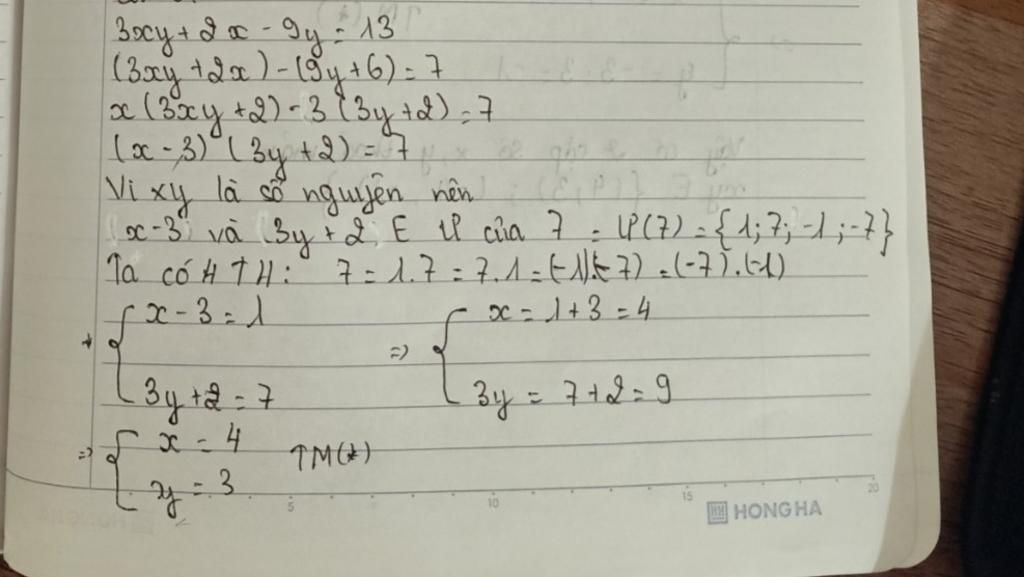 3xy + 2x - 9y = 13
(3xy + 2x) - (9y + 6) = 7
x (3xy + 2) - 3 (3y + 2) = 7
(x - 3) (3y + 2) = 7
Vì xy là số nguyên nên
x-3 và 3y + 2 E Ư của 7 = Ư(7) = {1; 7; -1; -7}
Ta có 4 TH: 7 = 1.7 = 7.1 = (-1).(-7) = (-7).(-1)
+ { x - 3 = 1 => { x = 1 + 3 = 4
3y + 2 = 7 3y = 7 + 2 = 9
=> { x = 4 TM(*)
y = 3
5 10 15 20
HONG HA